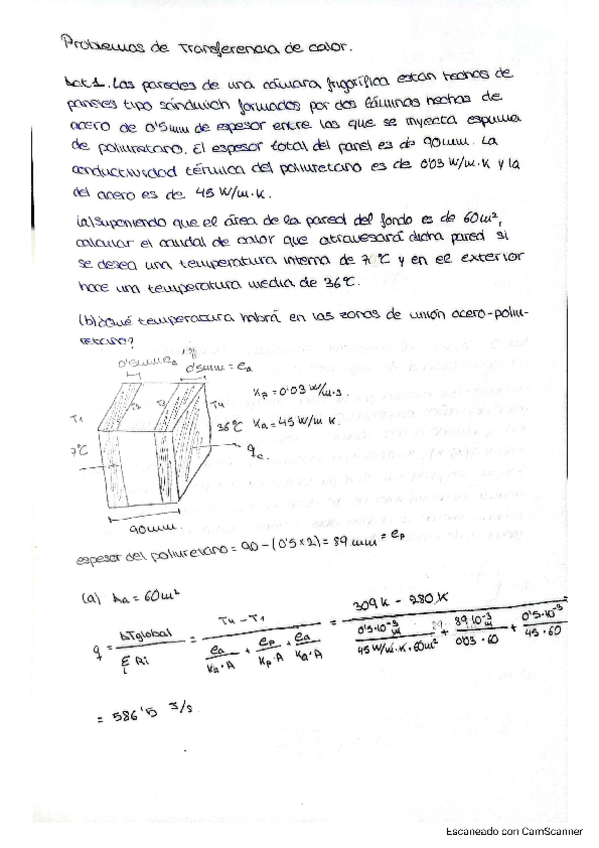 Problemas de Transferencia de calor.
Act 1. Las paredes de una cámara frigorífica están hechas de
paneles tipo sándwich formados por dos láminas hechas de
acero de 0'5mm de espesor entre las que se inyecta espuma
de poliuretano. El espesor total del panel es de 90mm. La
conductividad térmica del poliuretano es de 0'03 W/m·K y la
del acero es de 45 W/m·K.
(a) Suponiendo que el área de la pared del fondo es de 60m²,
calcular el caudal de calor que atravesará dicha pared si
se desea una temperatura interna de 7 ºC y en el exterior
hace una temperatura media de 36ºC.
(b) ¿Qué temperatura habrá en las zonas de unión acero-poliu-
retano?
0'5mm ea 0'5mm = ea
T1 T2 T3 T4
Kp = 0'03 W/m·
36ºC Ka = 45 W/m K.
7ºC qc.
90mm.
espesor del poliuretano = 90 - (0'5 x 2) = 89 mm = ep
(a) Aa = 60m²
q = ΔTglobal / Σi Ri = T4 - T1 / ea/Ka·A + ep/Kp·A + ea/Ka·A = 309K - 280K / 0'5·10-3 m/45 W/m·K·60m² + 89·10-3 m/0'03·60 + 0'5·10-3/45·60
= 586'5 J/s
Escaneado con CamScanner